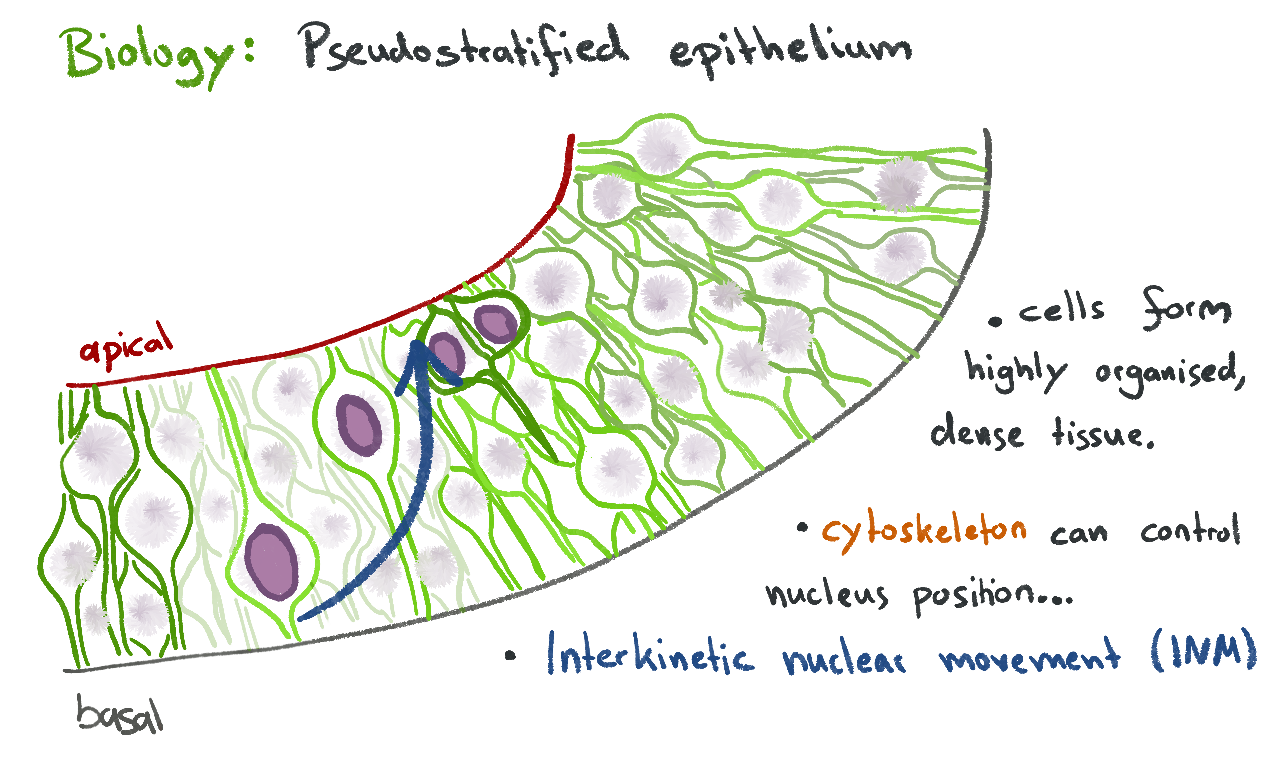 Biology: Pseudostratified epithelium
apical
• cells form
highly organised,
dense tissue.
• cytoskeleton can control
nucleus position...
• Interkinetic nuclear movement (INM)
basal